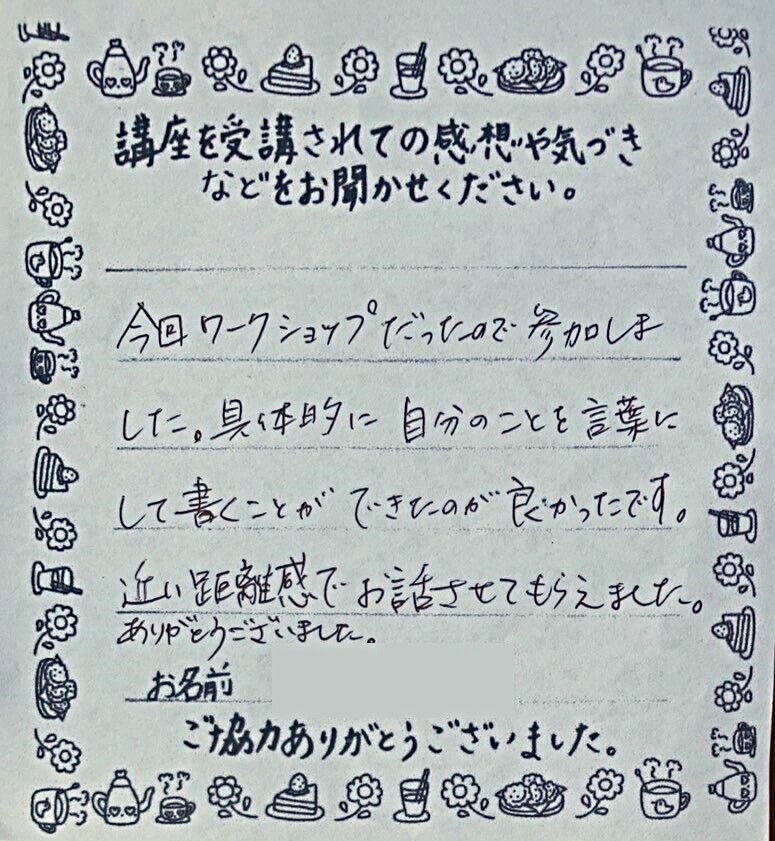 講座を受講されての感想や気づき
などをお聞かせください。
今回ワークショップだったので参加しま
した。具体的に自分のことを言葉に
して書くことができたのが良かったです。
近い距離感でお話させてもらえました。
ありがとうございました。
お名前
ご協力ありがとうございました。